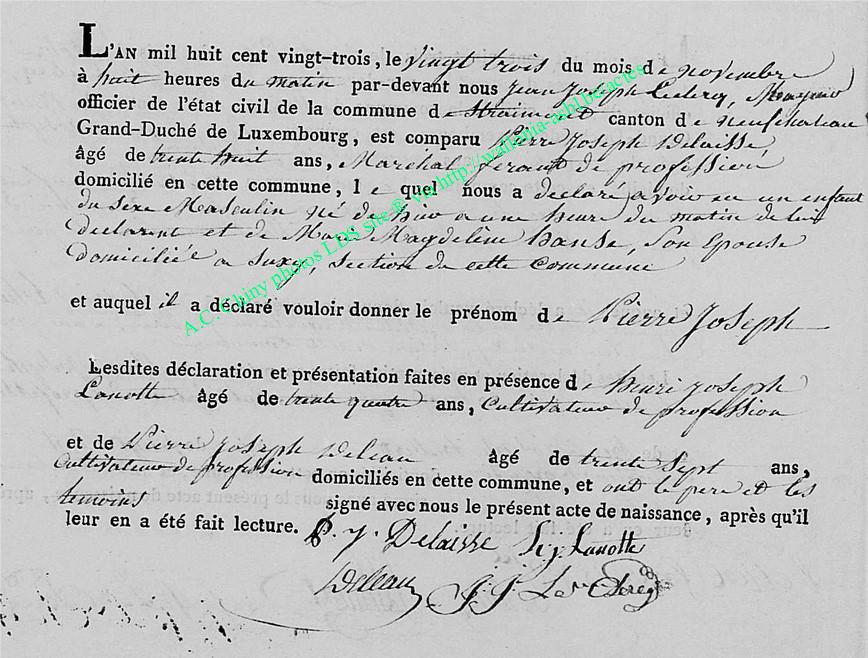 L'AN mil huit cent vingt-trois, le vingt trois du mois de novembre
à huit heures du matin par-devant nous Jean Joseph Leclercq,
officier de l'état civil de la commune de Straimont canton de neufchateau
Grand-Duché de Luxembourg, est comparu Pierre Joseph Delaisse
âgé de trente huit ans, Marechal ferant de profession
domicilié en cette commune, le quel nous a declaré avoir eu un enfant
du sexe Masculin né de hier a une heure du matin de lui
declarent et de Marie Magdeleine hanse, son Epouse
domiciliée a Suxy, section de cette commune
et auquel il a déclaré vouloir donner le prénom de Pierre Joseph
Lesdites déclaration et présentation faites en présence de henri joseph
Lanotte âgé de trente quatre ans, Cultivateur de profession
et de Pierre Joseph Deleau âgé de trente Sept ans,
Cultivateur de profession domiciliés en cette commune, et ont le pere et les
temoins signé avec nous le présent acte de naissance, après qu'il
leur en a été fait lecture. P. J. Delaisse Lanotte
Deleau J. J. Le Clercq
A.C. Chiny photos LDS site® via http://wallonia-asbl.be/actes